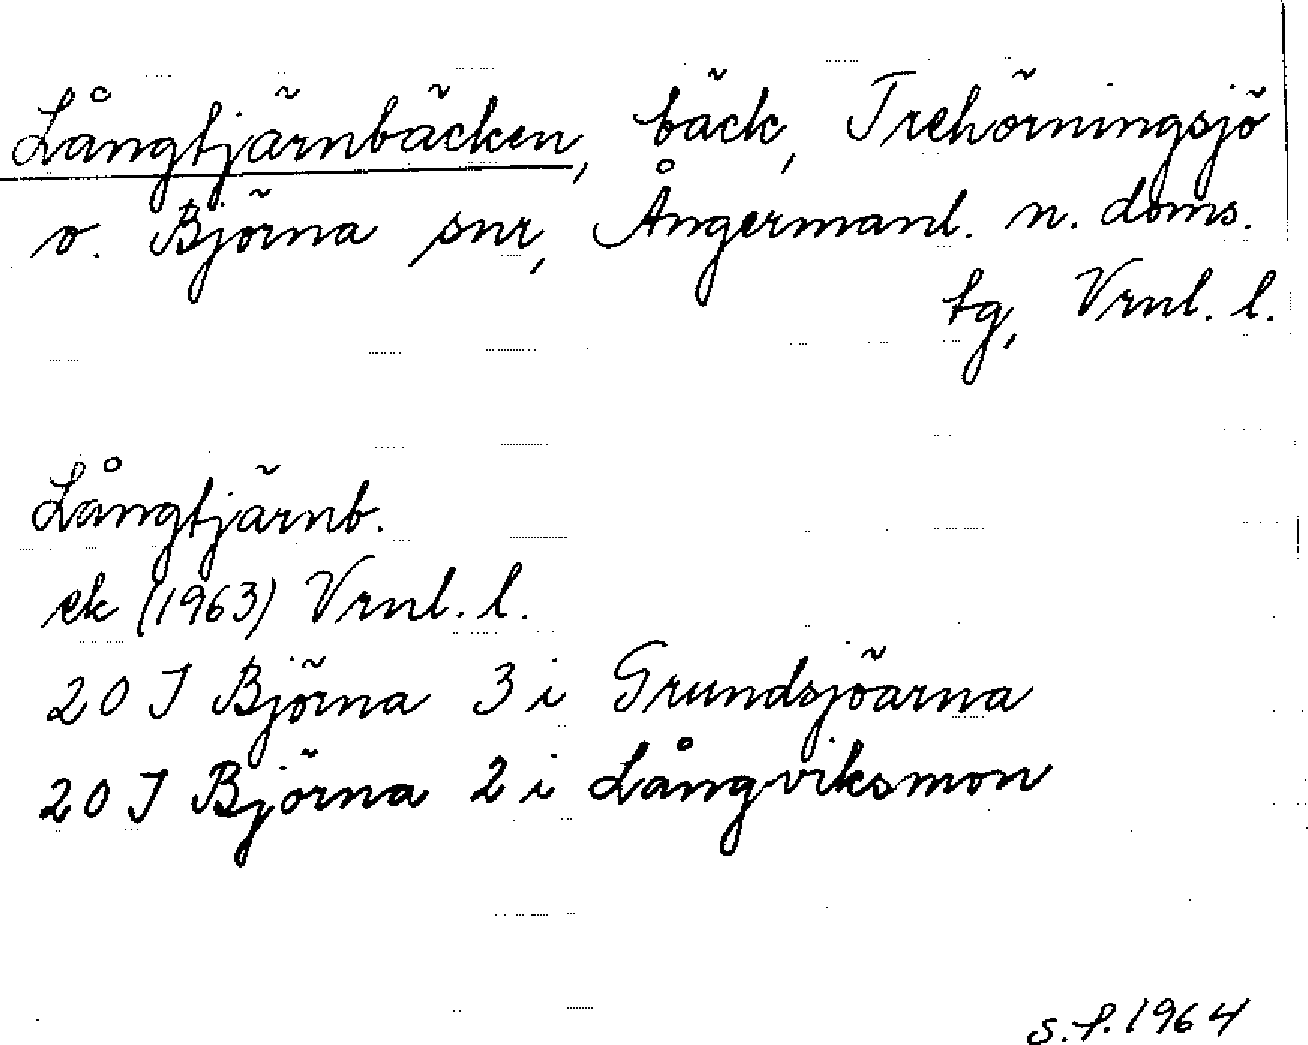 Långtjärnbäcken, bäck, Trehörningsjö
o. Björna snr, Ångermanl. n. doms.
tg, Vrnl. l.
Långtjärnb.
ek (1963) Vrnl. l.
20 I Björna 3 i Grundsjöarna
20 I Björna 2 i Långviksmon
s. f. 1964